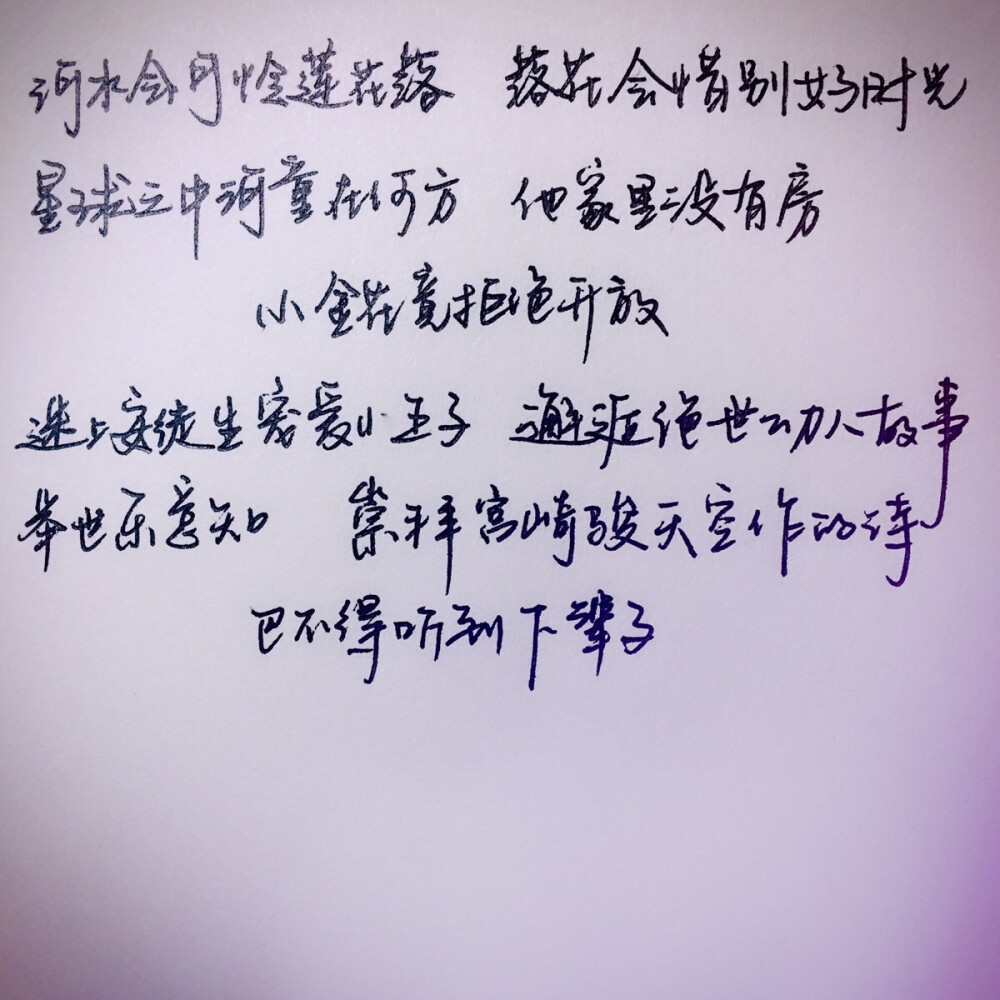 河水会可怜莲花落 落花会惜别好时光
星球之中河童在何方 他家里没有房
小金花竟拒绝开放
迷上安徒生宠爱小王子 邂逅绝世动人故事
举世乐意知 崇拜宫崎骏天空作的诗
巴不得听到下辈子